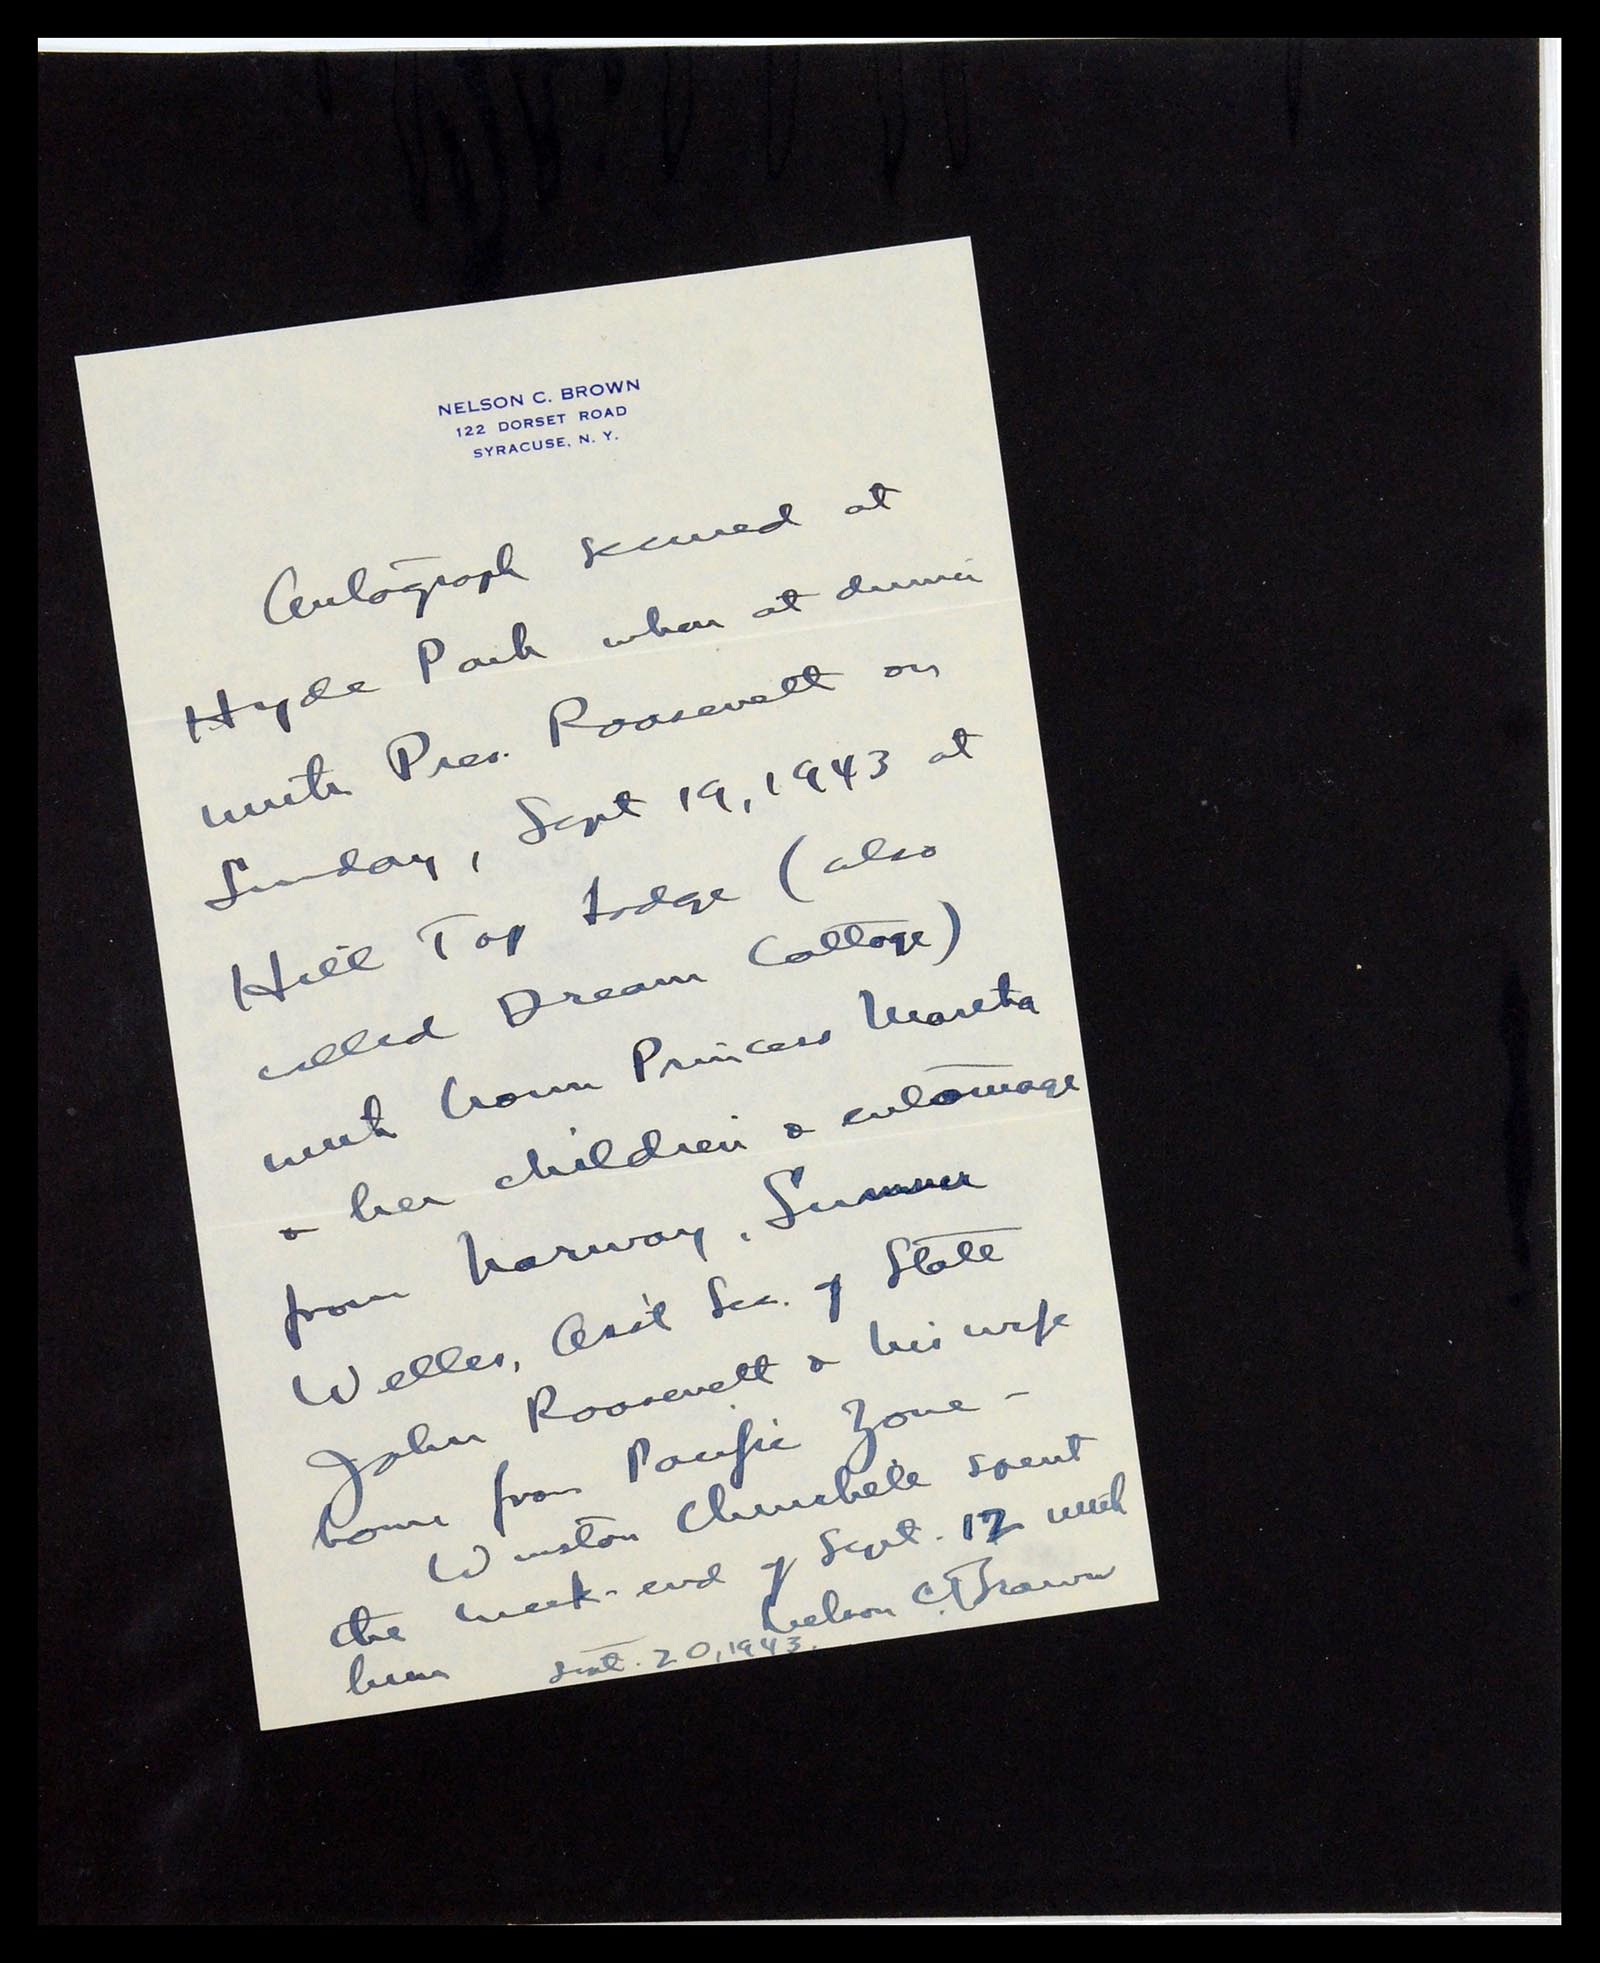 NELSON C. BROWN
122 DORSET ROAD
SYRACUSE, N. Y.
Autograph secured at
Hyde Park when at dinner
with Pres. Roosevelt on
Sunday, Sept 19, 1943 at
Hill Top Lodge (also
called Dream Cottage)
with Crown Princess Martha
& her children & entourage
from Norway, Sumner
Welles, Ass't Sec. of State
John Roosevelt & his wife
home from Pacific Zone -
Winston Churchill spent
the week-end of Sept. 12 with
him
Nelson C. Brown
Sept. 20, 1943.